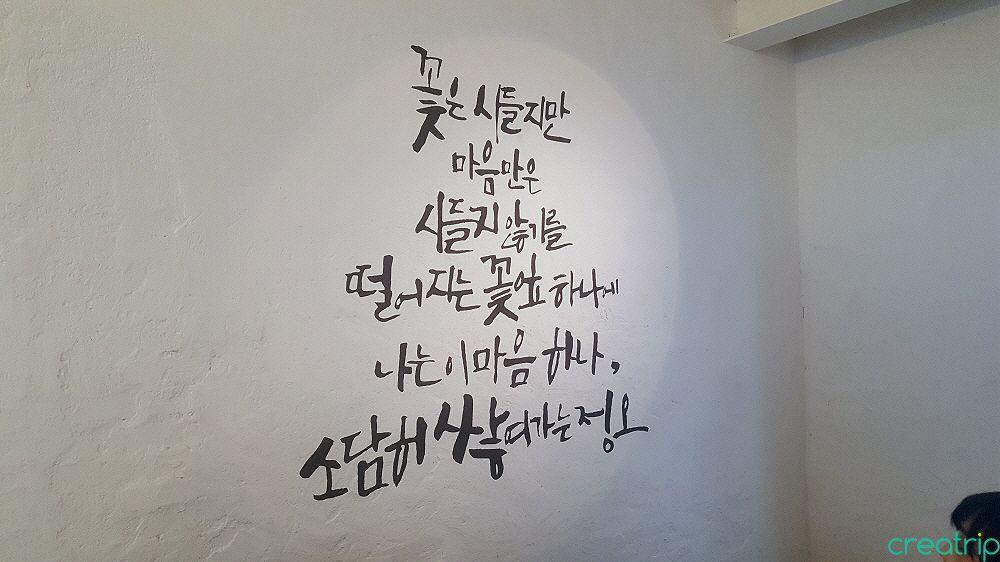 꽃은 시들지만
마음만은
시들지 않기를
떨어지는 꽃잎 하나에
나는 이 마음 하나,
소담히 싹 띄가는 정오
creatrip